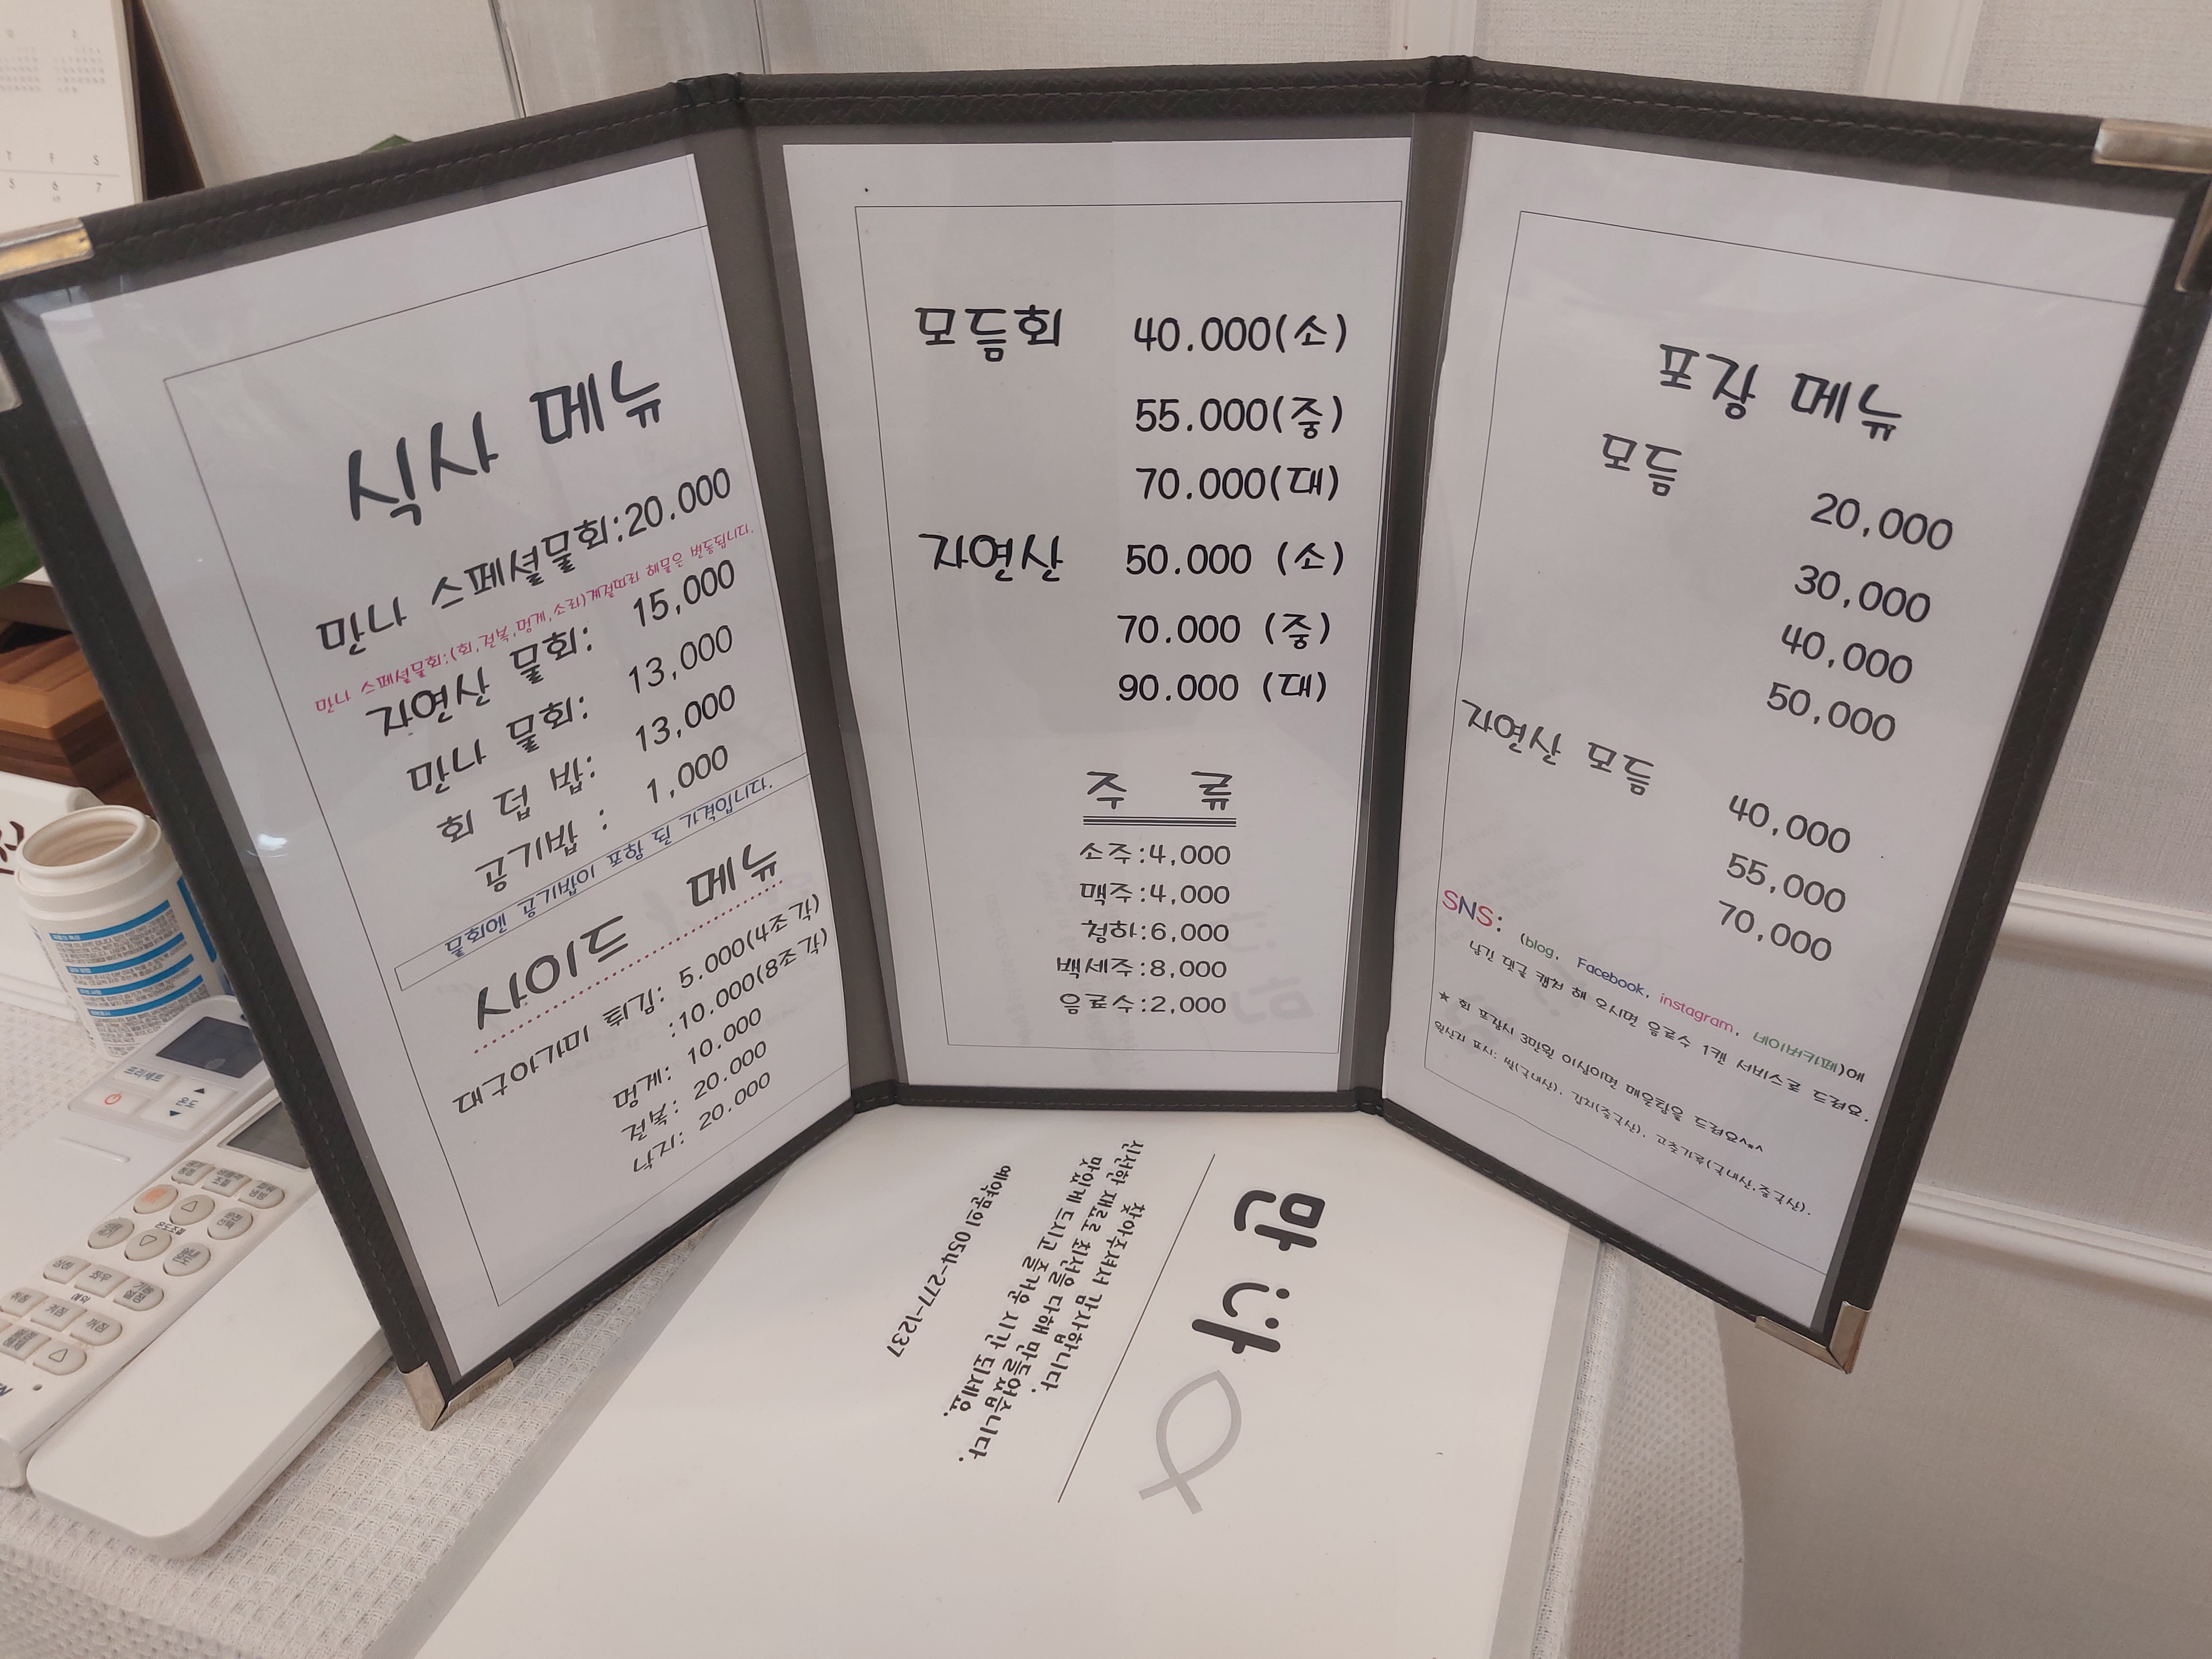 식사 메뉴
만나 스페셜물회:20.000
만나 스페셜물회:(회,전복,멍게,소라)계절따라 해물은 변동됩니다.
자연산 물회: 15,000
만나 물회: 13,000
회 덥 밥: 13,000
공기밥 : 1,000
물회엔 공기밥이 포함 된 가격입니다.
사이드 메뉴
대구아가미 튀김: 5.000(4조각)
:10.000(8조각)
멍게: 10.000
전복: 20.000
낙지: 20.000
모듬회 40.000(소)
55.000(중)
70.000(대)
자연산 50.000 (소)
70.000 (중)
90.000 (대)
주 류
소주:4,000
맥주:4,000
청하:6,000
백세주:8,000
음료수:2,000
포장 메뉴
모듬
20,000
30,000
40,000
50,000
자연산 모듬
40,000
55,000
70,000
SNS: (blog, Facebook, instagram, 네이버카페)에
남긴 댓글 캡쳐 해 오시면 음료수 1캔 서비스로 드려요.
★ 회 포장시 3만원 이상이면 매운탕을 드려요^*^
원산지 표시: 쌀(국내산), 김치(중국산), 고춧가루(국내산,중국산).
만나
찾아주셔서 감사합니다.
신선한 재료로 최선을 다해 만들었습니다.
맛있게 드시고 즐거운 시간 되세요.
예약문의 054-277-1237
T F S
5 6 7
프리세트
온도